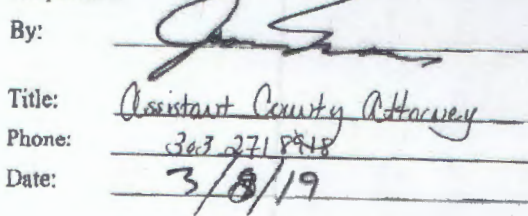 By:
Title: Assistant County Attorney
Phone: 303 271 8918
Date: 3/8/19